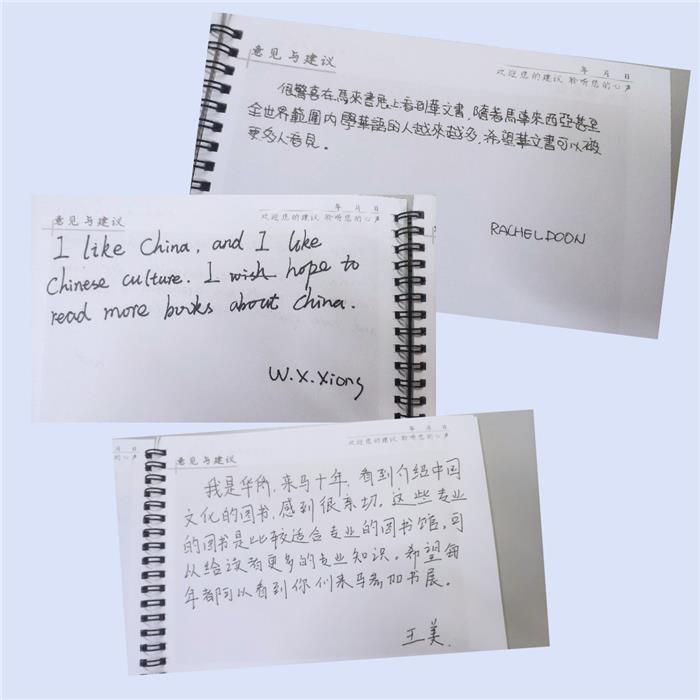 意见与建议
年 月 日
欢迎您的建议 聆听您的心声
很驚喜在馬來書展上看到華文書,隨着馬來西亞甚至
全世界範圍内學華語的人越來越多,希望華文書可以被
更多人看見。
RACHEL DOON
意见与建议
年 月 日
欢迎您的建议 聆听您的心声
I like China, and I like
Chinese culture. I wish hope to
read more books about China.
W.X.Xiong
月 日
的心声
意见与建议
年 月 日
欢迎您的建议 聆听您的心声
我是华侨,来马十年,看到介绍中国
文化的图书,感到很亲切。这些专业
的图书是比较适合专业的图书馆,可
以给读者更多的专业知识。希望每
年都可以看到你们来马参加书展。
王美.